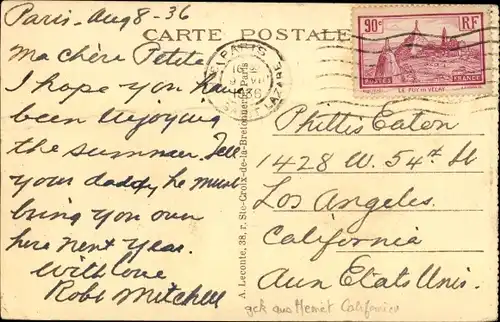 Paris. Aug 8 - 36
CARTE POSTALE
Ma chère Petite
I hope you have
been enjoying
the summer. Tell
your daddy he must
bring you over
here next year.
With love
Robt Mitchell
A. Leconte, 38, r. Ste-Croix-de-la-Bretonnerie, Paris
PARIS
1936
ST LAZARE
90c RF
POSTES FRANCE
LE PUY EN VELAY
Phillis Eaton
1428 W. 54th St
Los Angeles.
California
Aux Etats Unis.
gek aus Hemet Californien